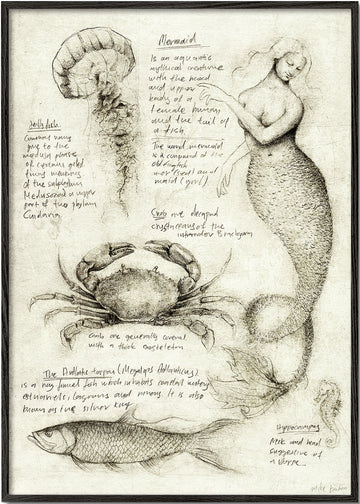 Mermaid
Is an aquatic
mythical creature
with the head
and upper
body of a
female human
and the tail of
a fish.
The word mermaid
is a compound of the
old english
mere (sea) and
maid (girl)
Jellyfish
Common name
give to the
medusa phase
of certain gelat
members
of the subphylum
Medusozoa a
part of the phylum
Cnidaria
Crab are decapod
crustaceans of the
infraorder Brachyura
Crab are generally covered
with a thick exoskeleton
The Atlantic tarpon (Megalops Atlanticus)
is a ray finned fish which inhabits coastal waters
estuaries, lagoons and rivers. It is also
known as the silver king
Hippocampus
Neck and head
suggestive of
a horse